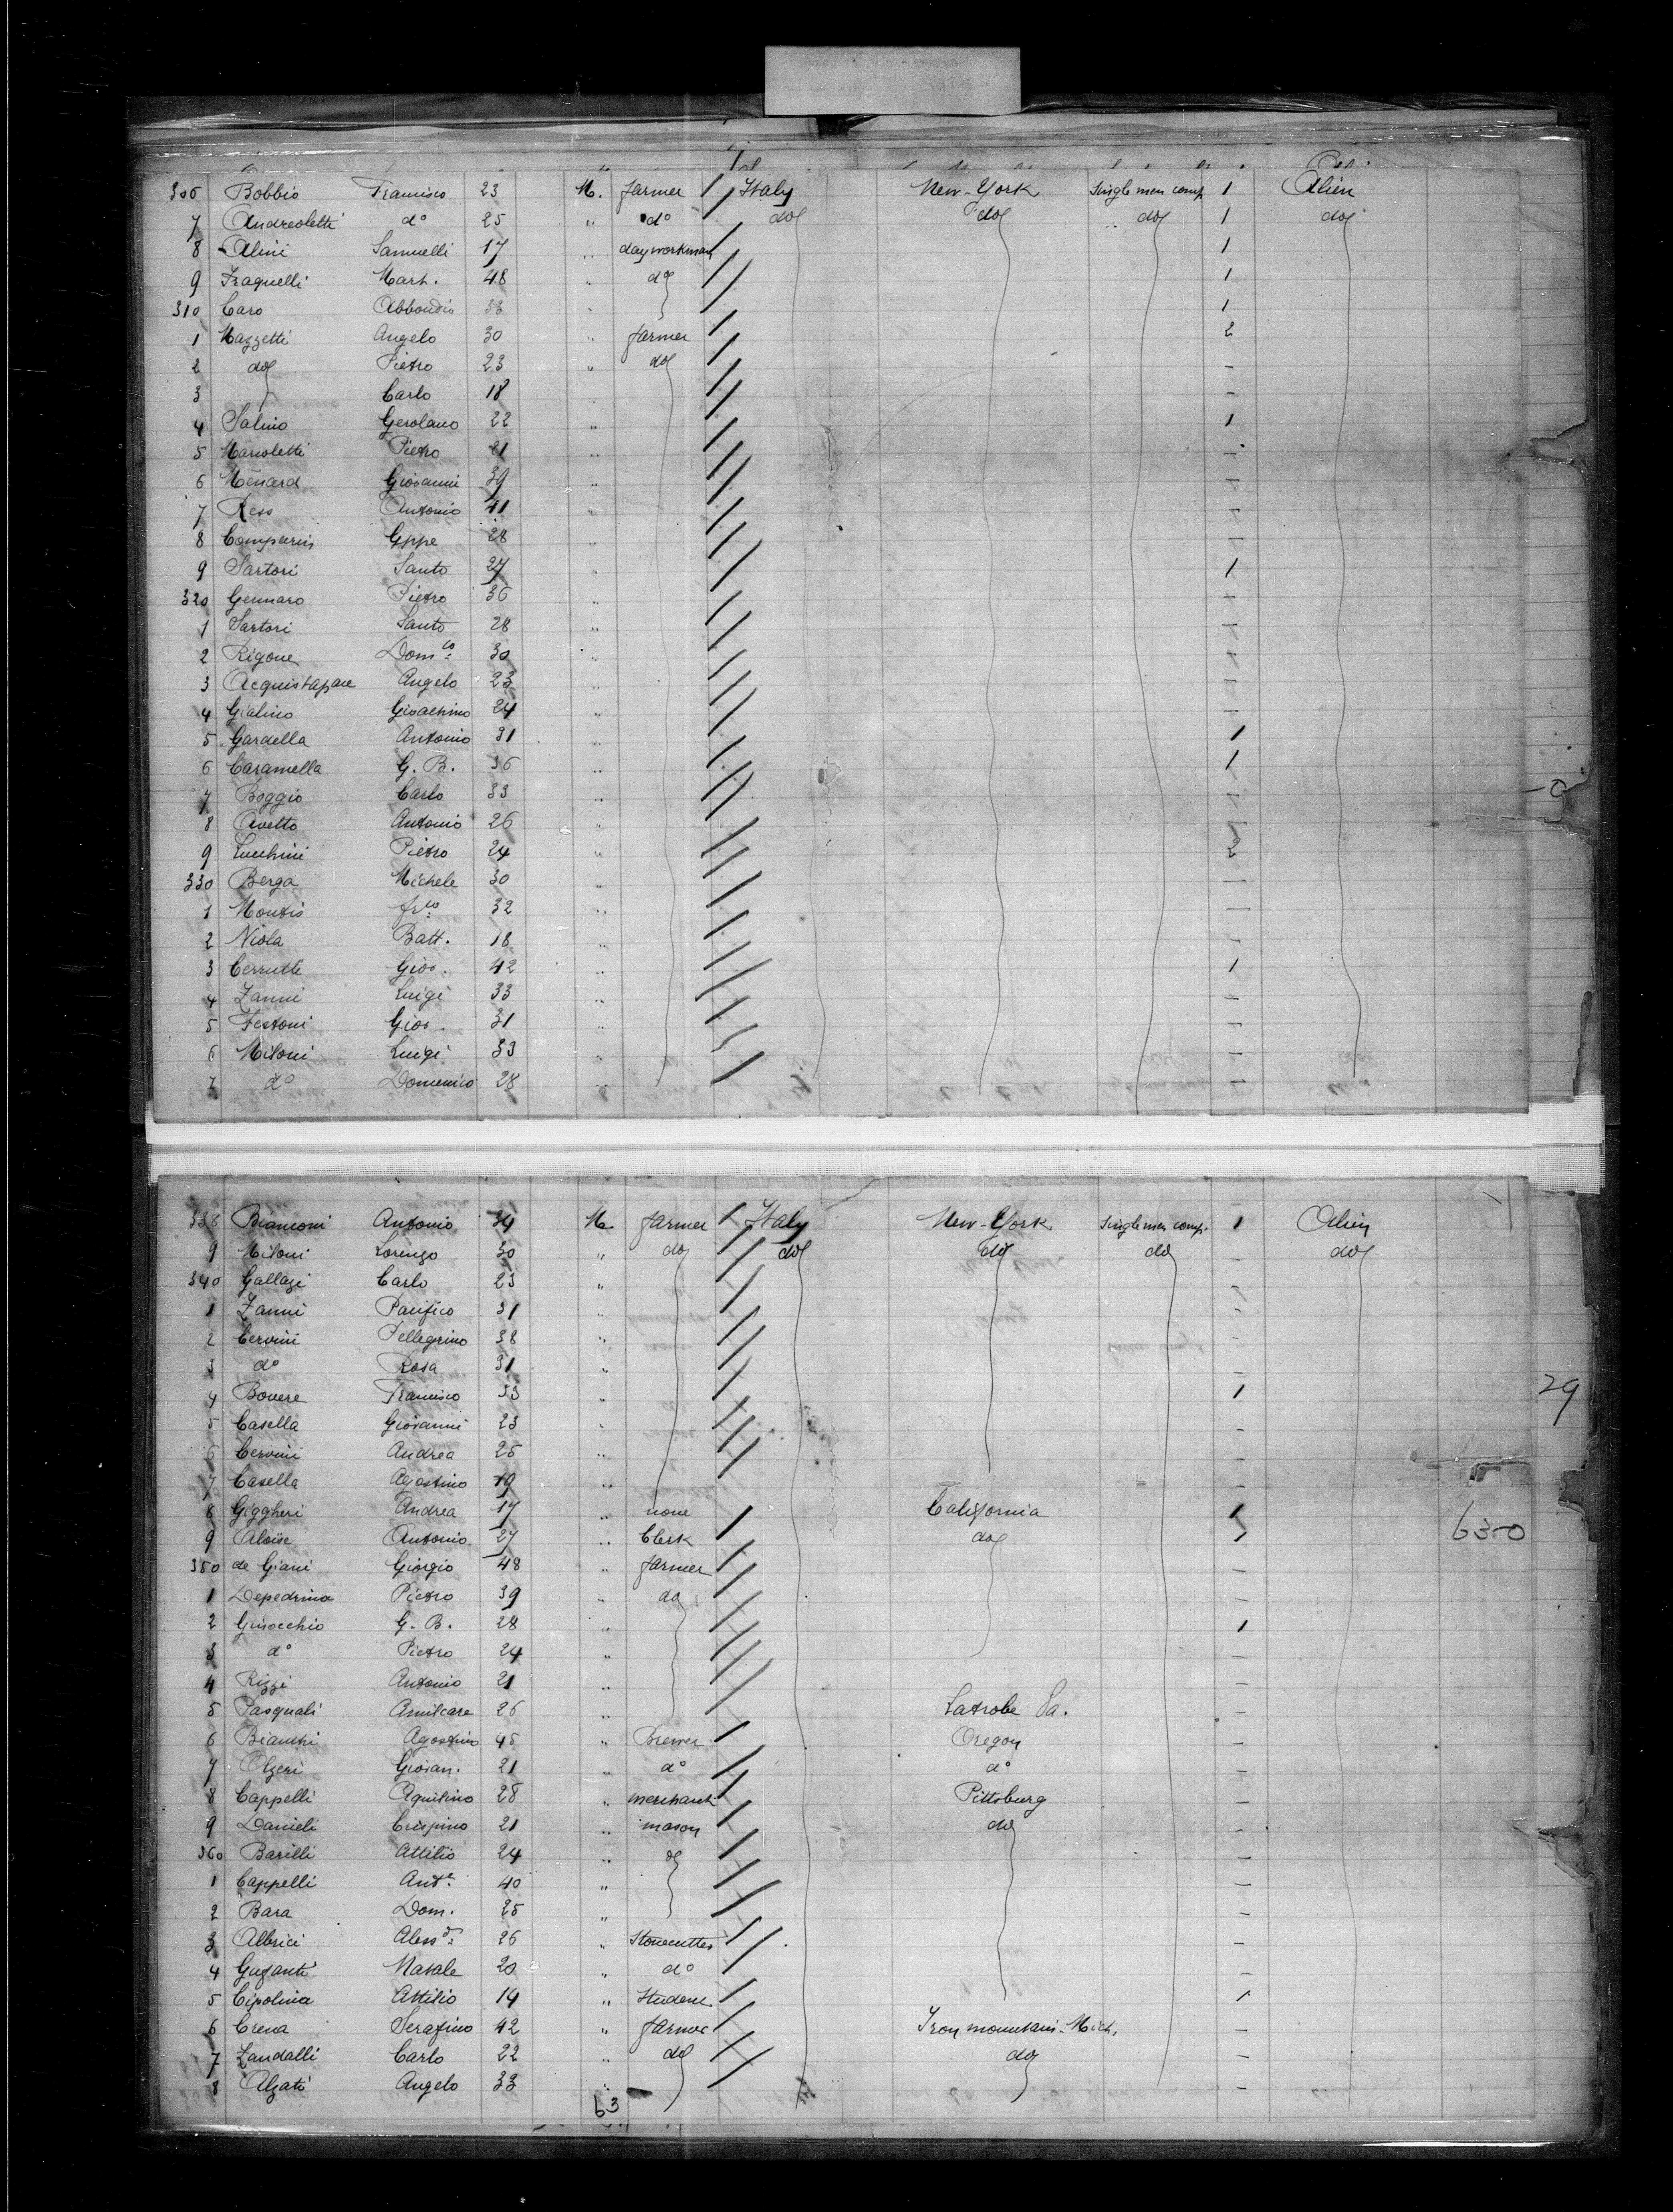 306 Bobbio Francisco 23 M. farmer Italy New-York Single men comp. 1 Alien
7 Andreoletti do 25 " do do do do 1 do
8 Alini Samuelli 17 " dayworkman 1
9 Fraquelli Mart. 48 " do 1
310 Caro Abbondio 38 " 1
1 Mazzetti Angelo 30 " farmer 2
2 do Pietro 23 " do -
3 Carlo 18 " -
4 Salino Gerolamo 22 " 1
5 Marioletti Pietro 21 " -
6 Menard Giovanni 39 " -
7 Ress Antonio 41 " -
8 Comparin Gppe 28 " -
9 Sartori Santo 27 " 1
320 Gennaro Pietro 36 -
1 Sartori Santo 28 " -
2 Rigone Domco 30 " -
3 Acquistapace Angelo 23 " -
4 Gialino Gioachino 24 " -
5 Gardella Antonio 31 " 1
6 Caramella G. B. 36 " 1
7 Boggio Carlo 33 " -
8 Avetto Antonio 26 " -
9 Lucchini Pietro 24 " 2
330 Berga Michele 30 " -
1 Frco 32 " -
2 Niola Batt. 18 " -
3 Cerrutti Giov. 42 " 1
4 Zanni Luigi 33 " -
5 Testoni Giov. 31 " -
6 Miloni Luigi 33 " -
7 do Domenico 28 " -
338 Bianconi Antonio 34 M. farmer Italy New-York Single men comp. 1 Alien
9 Miloni Lorenzo 30 " do do do do - do
340 Gallazi Carlo 23 " -
1 Zanni Pacifico 31 " -
2 Cervini Pellegrino 38 " -
3 do Rosa 31 " -
4 Bovere Francisco 33 " 1
5 Casella Giovanni 23 " -
6 Cervini Andrea 25 " -
7 Casella Agostino 19 " -
29
8 Giggheri Andrea 17 " none California 1
9 Aloise Antonio 27 " Clerk do 1 630
350 de Giani Giorgio 48 " farmer -
1 Depedrina Pietro 39 " do -
2 Ginocchio G. B. 28 " 1
3 do Pietro 24 " -
4 Rizzi Antonio 21 " -
5 Pasquali Amilcare 26 " Latrobe Pa. -
6 Bianchi Agostino 45 " Brewer Oregon -
7 Olzeri Giovan. 21 " do do -
8 Cappelli Aquilino 28 " merchant Pittsburg -
9 Danieli Crispino 21 " mason do -
360 Barilli Attilio 24 " do -
1 Cappelli Anto. 40 " -
2 Bara Dom. 25 " -
3 Albrici Alessd. 26 " Stonecutter -
4 Gufanti Natale 20 " do -
5 Cipolina Attilio 14 " Student 1
6 Crena Serafino 42 " farmer Iron mountain. Mich. -
7 Zandalli Carlo 22 " do do -
8 Alzati Angelo 33 " -
63